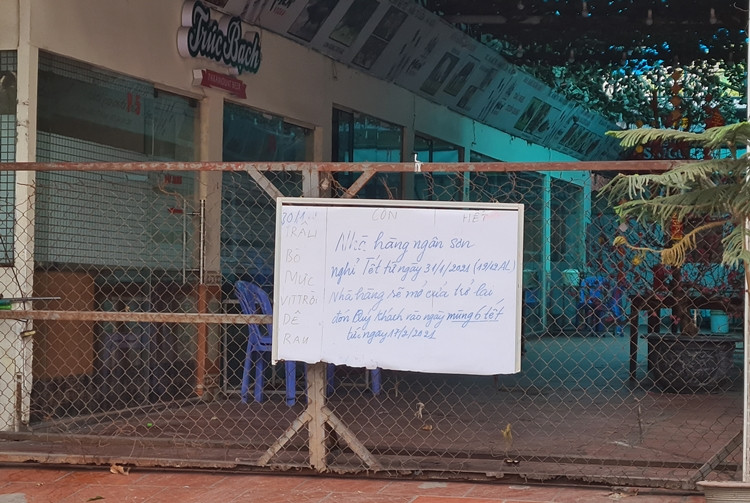 Trúc Bạch
CÒN HẾT
TRÂU
BÒ
MỰC
VỊT TRỜI
DÊ
RAU
Nhà hàng ngân sơn
nghỉ Tết từ ngày 31/1/2021 (19/12 AL)
Nhà hàng sẽ mở cửa trở lại
đón Quý khách vào ngày mùng 6 tết
tức ngày 17/2/2021